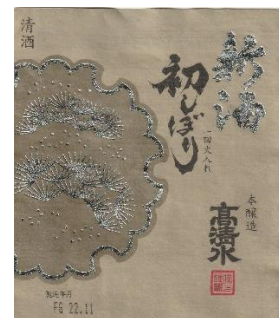 清酒
新酒
初しぼり
一回火入れ
本醸造
高清水
製造年月
FG 22.11